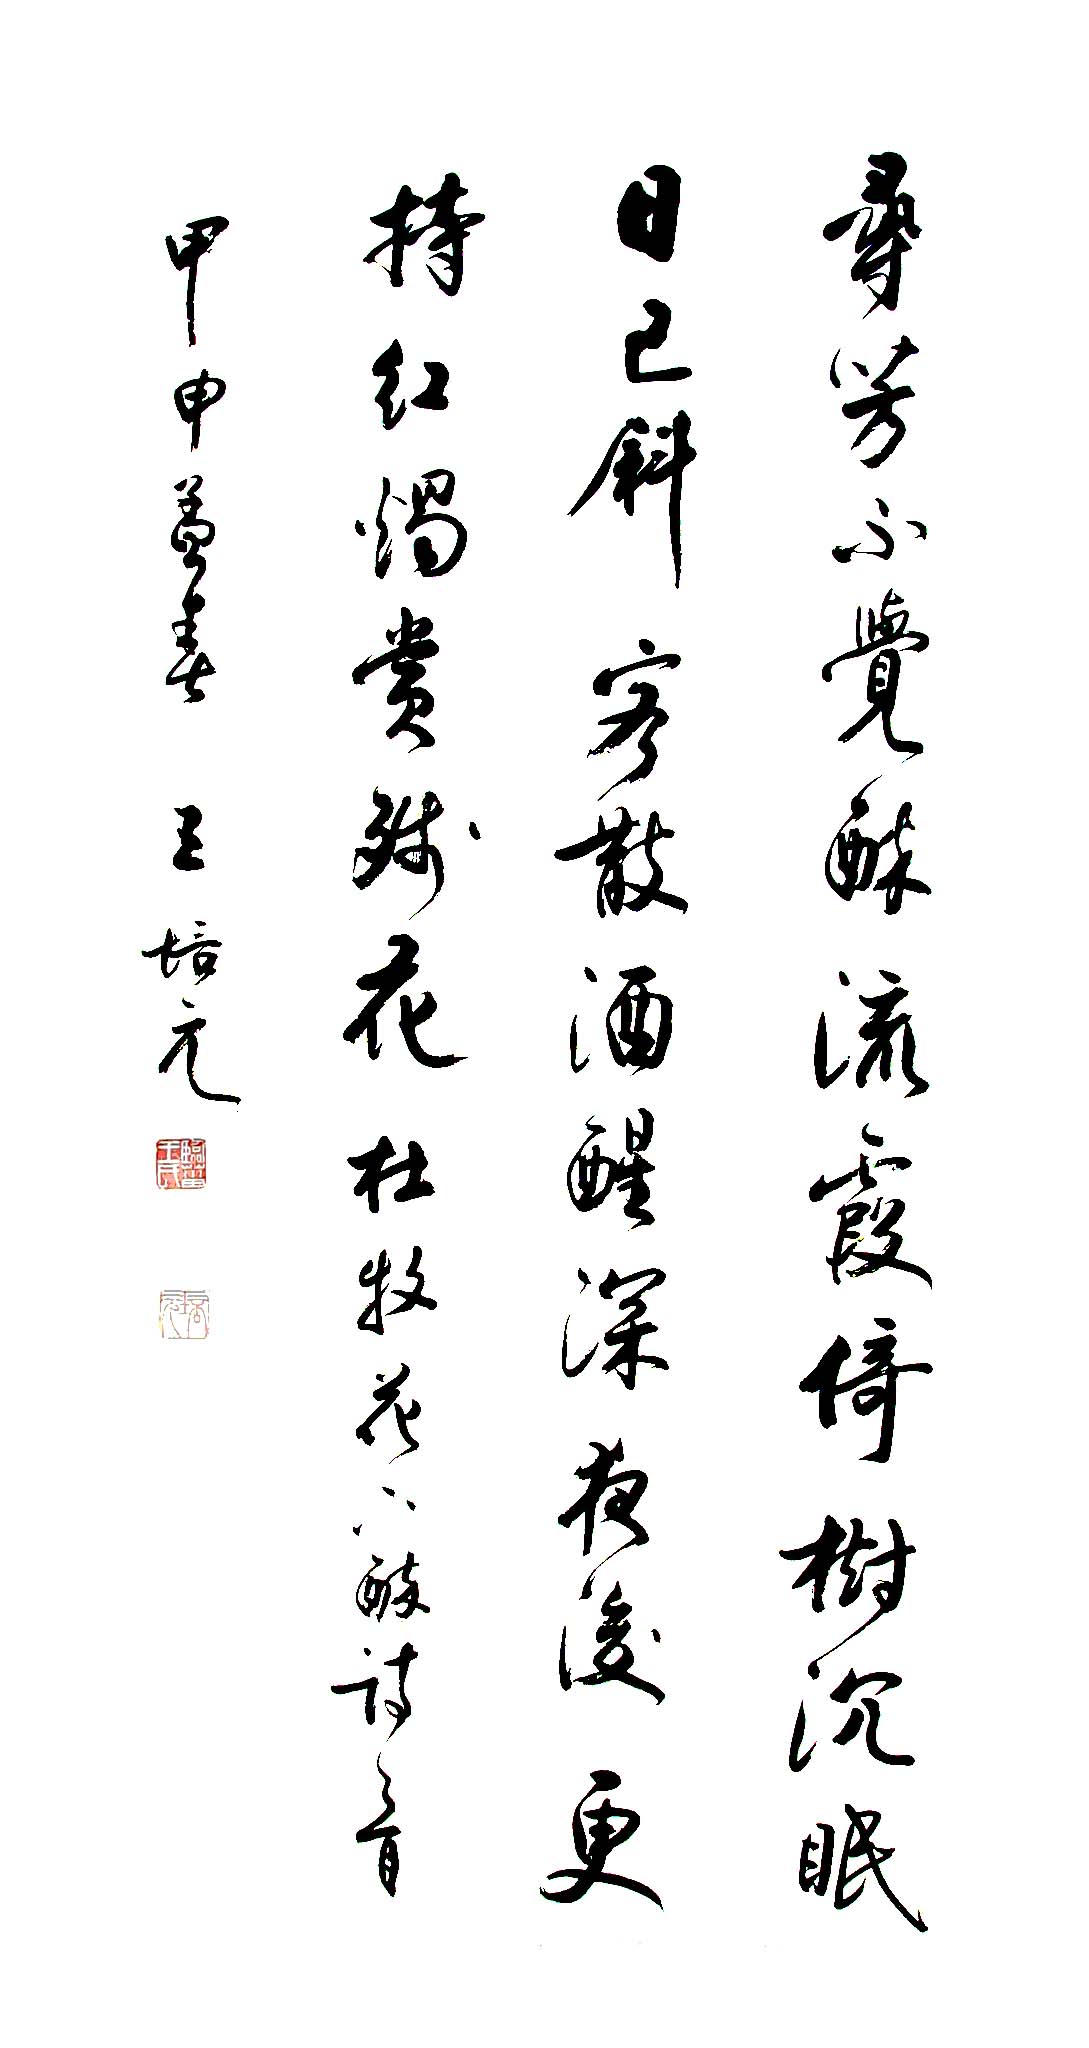 尋芳不覺醉流霞倚樹沉眠
日已斜客散酒醒深夜後更
持红燭賞殘花杜牧花下醉詩一首
甲申孟春 王培元